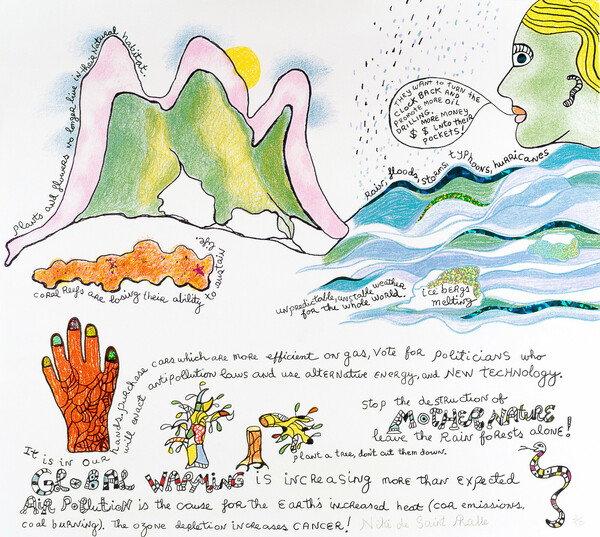 Plants and flowers no longer live in their natural habitat.
THEY WANT TO TURN THE
CLOCK BACK AND
PROMOTE MORE OIL
DRILLING.
MORE MONEY
$ $ INTO their
POCKETS!
Rain, floods, storms, typhoons, hurricanes
coral Reefs are losing their ability to sustain
life.
unpredictable, unstable weather
for the whole world.
ice bergs
melting
It is in our hands, purchase cars which are more efficient on gas, vote for politicians who
will enact antipollution laws and use alternative energy, and NEW TECHNOLOGY.
Stop the destruction of
MOTHER NATURE
leave the Rain forests alone!
Plant a tree, don't cut them down.
GLOBAL WARMING is increasing more than expected
AIR POLLUTION is the cause for the Earth's increased heat (car emissions,
coal burning). The ozone depletion increases CANCER!
Niki de Saint Phalle